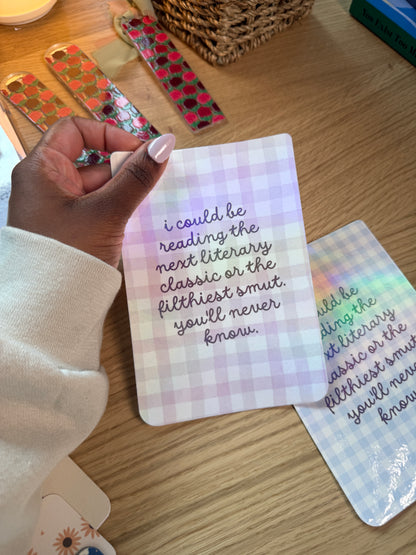 i could be
reading the
next literary
classic or the
filthiest smut.
you'll never
know.
uld be
ding the
xt literary
lassic or the
filthiest smut.
you'll never
know.